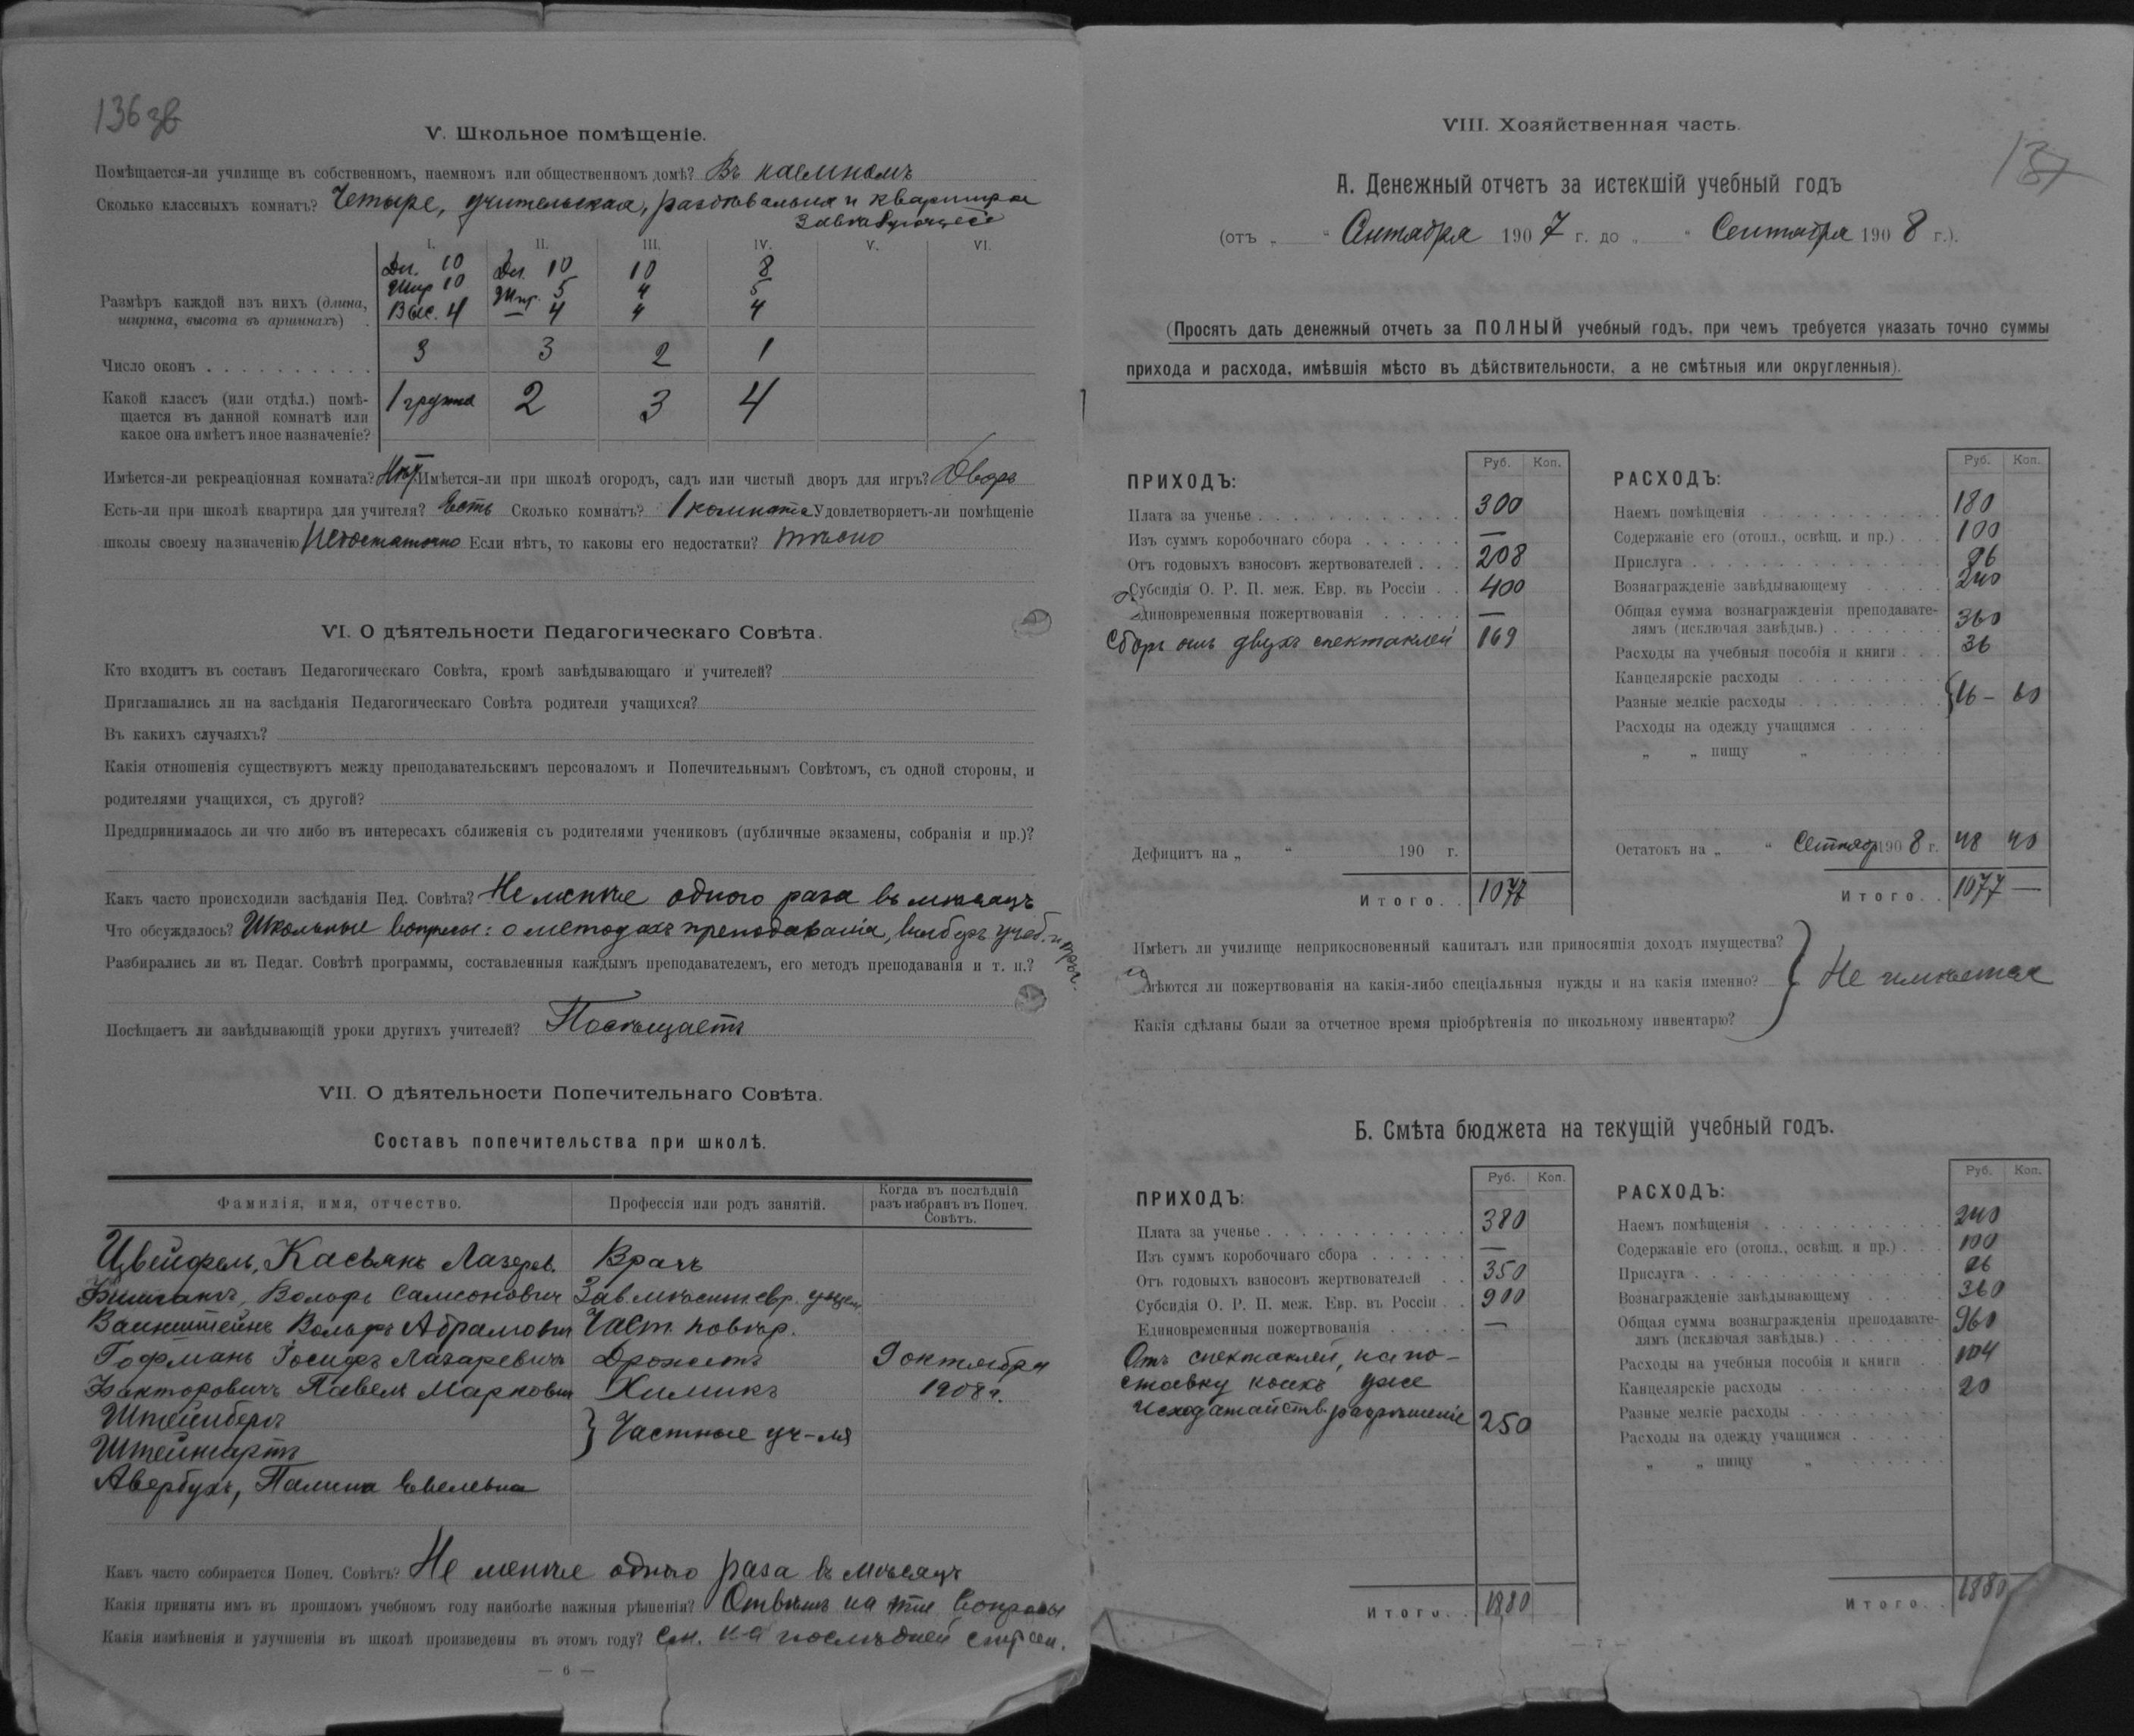 136 об
V. Школьное помѣщеніе.
Помѣщается-ли училище въ собственномъ, наемномъ или общественномъ домѣ? Въ наемномъ
Сколько классныхъ комнатъ? Четыре, учительская, раздѣвальня и квартира
завѣдующаго
I. II. III. IV. V. VI.
Размѣръ каждой изъ нихъ (длина, ширина, высота въ аршинахъ) .
Дл. 10 Дл. 10 10 8
Шир 10 Шир. 5 4 5
Выс. 4 — 4 4 4
Число оконъ . . . . . . . . . . 3 3 2 1
Какой классъ (или отдѣл.) помѣ-
щается въ данной комнатѣ или
какое она имѣетъ иное назначеніе?
1 группа 2 3 4
Имѣется-ли рекреаціонная комната? Нѣтъ Имѣется-ли при школѣ огородъ, садъ или чистый дворъ для игръ? Дворъ
Есть-ли при школѣ квартира для учителя? Есть Сколько комнатъ? 1 комната Удовлетворяетъ-ли помѣщеніе
школы своему назначенію Недостаточно Если нѣтъ, то каковы его недостатки? тѣсно
VI. О дѣятельности Педагогическаго Совѣта.
Кто входитъ въ составъ Педагогическаго Совѣта, кромѣ завѣдывающаго и учителей?
Приглашались ли на засѣданія Педагогическаго Совѣта родители учащихся?
Въ какихъ случаяхъ?
Какія отношенія существуютъ между преподавательскимъ персоналомъ и Попечительнымъ Совѣтомъ, съ одной стороны, и
родителями учащихся, съ другой?
Предпринималось ли что либо въ интересахъ сближенія съ родителями учениковъ (публичные экзамены, собранія и пр.)?
Какъ часто происходили засѣданія Пед. Совѣта? Не менѣе одного раза въ мѣсяцъ
Что обсуждалось? Школьные вопросы: о методахъ преподаванія, выборъ учеб.
Разбирались ли въ Педаг. Совѣтѣ программы, составленныя каждымъ преподавателемъ, его методъ преподаванія и т. п.?
Посѣщаетъ ли завѣдывающій уроки другихъ учителей? Посѣщаетъ
VII. О дѣятельности Попечительнаго Совѣта.
Составъ попечительства при школѣ.
Фамилія, имя, отчество. Профессія или родъ занятій. Когда въ послѣдній разъ избранъ въ Попеч. Совѣтъ.
Цвейфель, Касьянъ Лазарев. Врачъ
Вольфъ Самсоновичъ Зав. мѣстн. евр. учил.
Ваинштейнъ Вольфъ Абрамович Част. повѣр.
Гофманъ Іосифъ Лазаревичъ Дрожист 9 октября
Факторовичъ Павелъ Маркович Химикъ 1908 г.
Штейнбергъ
Штейнгартъ
} Частные уч-ля
Авербухъ, Полина Евелевна
Какъ часто собирается Попеч. Совѣтъ? Не менѣе одного раза въ мѣсяцъ
Какія приняты имъ въ прошломъ учебномъ году наиболѣе важныя рѣшенія? Отвѣтъ на эти вопросы
Какія измѣненія и улучшенія въ школѣ произведены въ этомъ году? см. на послѣдней стран.
— 6 —
137
VIII. Хозяйственная часть.
А. Денежный отчетъ за истекшій учебный годъ
(отъ „ “ Сентября 1907 г. до „ “ Сентября 1908 г.).
(Просятъ дать денежный отчетъ за ПОЛНЫЙ учебный годъ, при чемъ требуется указать точно суммы
прихода и расхода, имѣвшія мѣсто въ дѣйствительности, а не смѣтныя или округленныя).
ПРИХОДЪ: Руб. Коп.
Плата за ученье . . . . 300
Изъ суммъ коробочнаго сбора . . . . —
Отъ годовыхъ взносовъ жертвователей . . . 208
Субсидія О. Р. П. меж. Евр. въ Россіи . . 400
Единовременныя пожертвованія . . . . —
Сборъ отъ двухъ спектаклей 169
Дефицитъ на „ “ 190 г.
Итого . . 1077
РАСХОДЪ: Руб. Коп.
Наемъ помѣщенія . . . . 180
Содержаніе его (отопл., освѣщ. и пр.) . . . 100
Прислуга . . . . 96
Вознагражденіе завѣдывающему . . . . 240
Общая сумма вознагражденія преподавате-
лямъ (исключая завѣдыв.) . . . . 360
Расходы на учебныя пособія и книги . . . 36
Канцелярскіе расходы . . . .
Разные мелкіе расходы . . . . { 16 – 60
Расходы на одежду учащимся . . . .
„ „ пищу „ . . . .
Остатокъ на „ “ Сентябр 1908 г. 48 40
Итого . . 1077 —
Имѣетъ ли училище неприкосновенный капиталъ или приносящія доходъ имущества?
Имѣются ли пожертвованія на какія-либо спеціальныя нужды и на какія именно?
Какія сдѣланы были за отчетное время пріобрѣтенія по школьному инвентарю?
} Не имѣется
Б. Смѣта бюджета на текущій учебный годъ.
ПРИХОДЪ: Руб. Коп.
Плата за ученье . . . . 380
Изъ суммъ коробочнаго сбора . . . . —
Отъ годовыхъ взносовъ жертвователей . . 350
Субсидія О. Р. П. меж. Евр. въ Россіи . . 900
Единовременныя пожертвованія . . . . —
Отъ спектаклей, на по-
ставку коихъ уже
исходатайств. разрѣшеніе 250
Итого . . 1880
РАСХОДЪ: Руб. Коп.
Наемъ помѣщенія . . . . 240
Содержаніе его (отопл., освѣщ. и пр.) . . . 100
Прислуга . . . . 96
Вознагражденіе завѣдывающему . . . . 360
Общая сумма вознагражденія преподавате-
лямъ (исключая завѣдыв.) . . . . 960
Расходы на учебныя пособія и книги . . 104
Канцелярскіе расходы . . . . 20
Разные мелкіе расходы . . . .
Расходы на одежду учащимся . . . .
„ „ пищу „ . . . .
Итого . . 1880
— 7 —